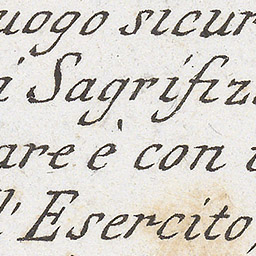 uogo sicur
i Sagrifiz
are è con
l' Esercito,